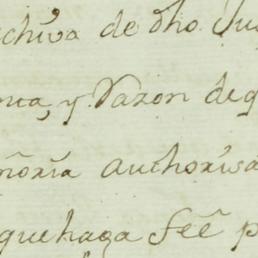 chiva de dho Juz
nta, y Razon de q
moria authorisa
que haga feê p